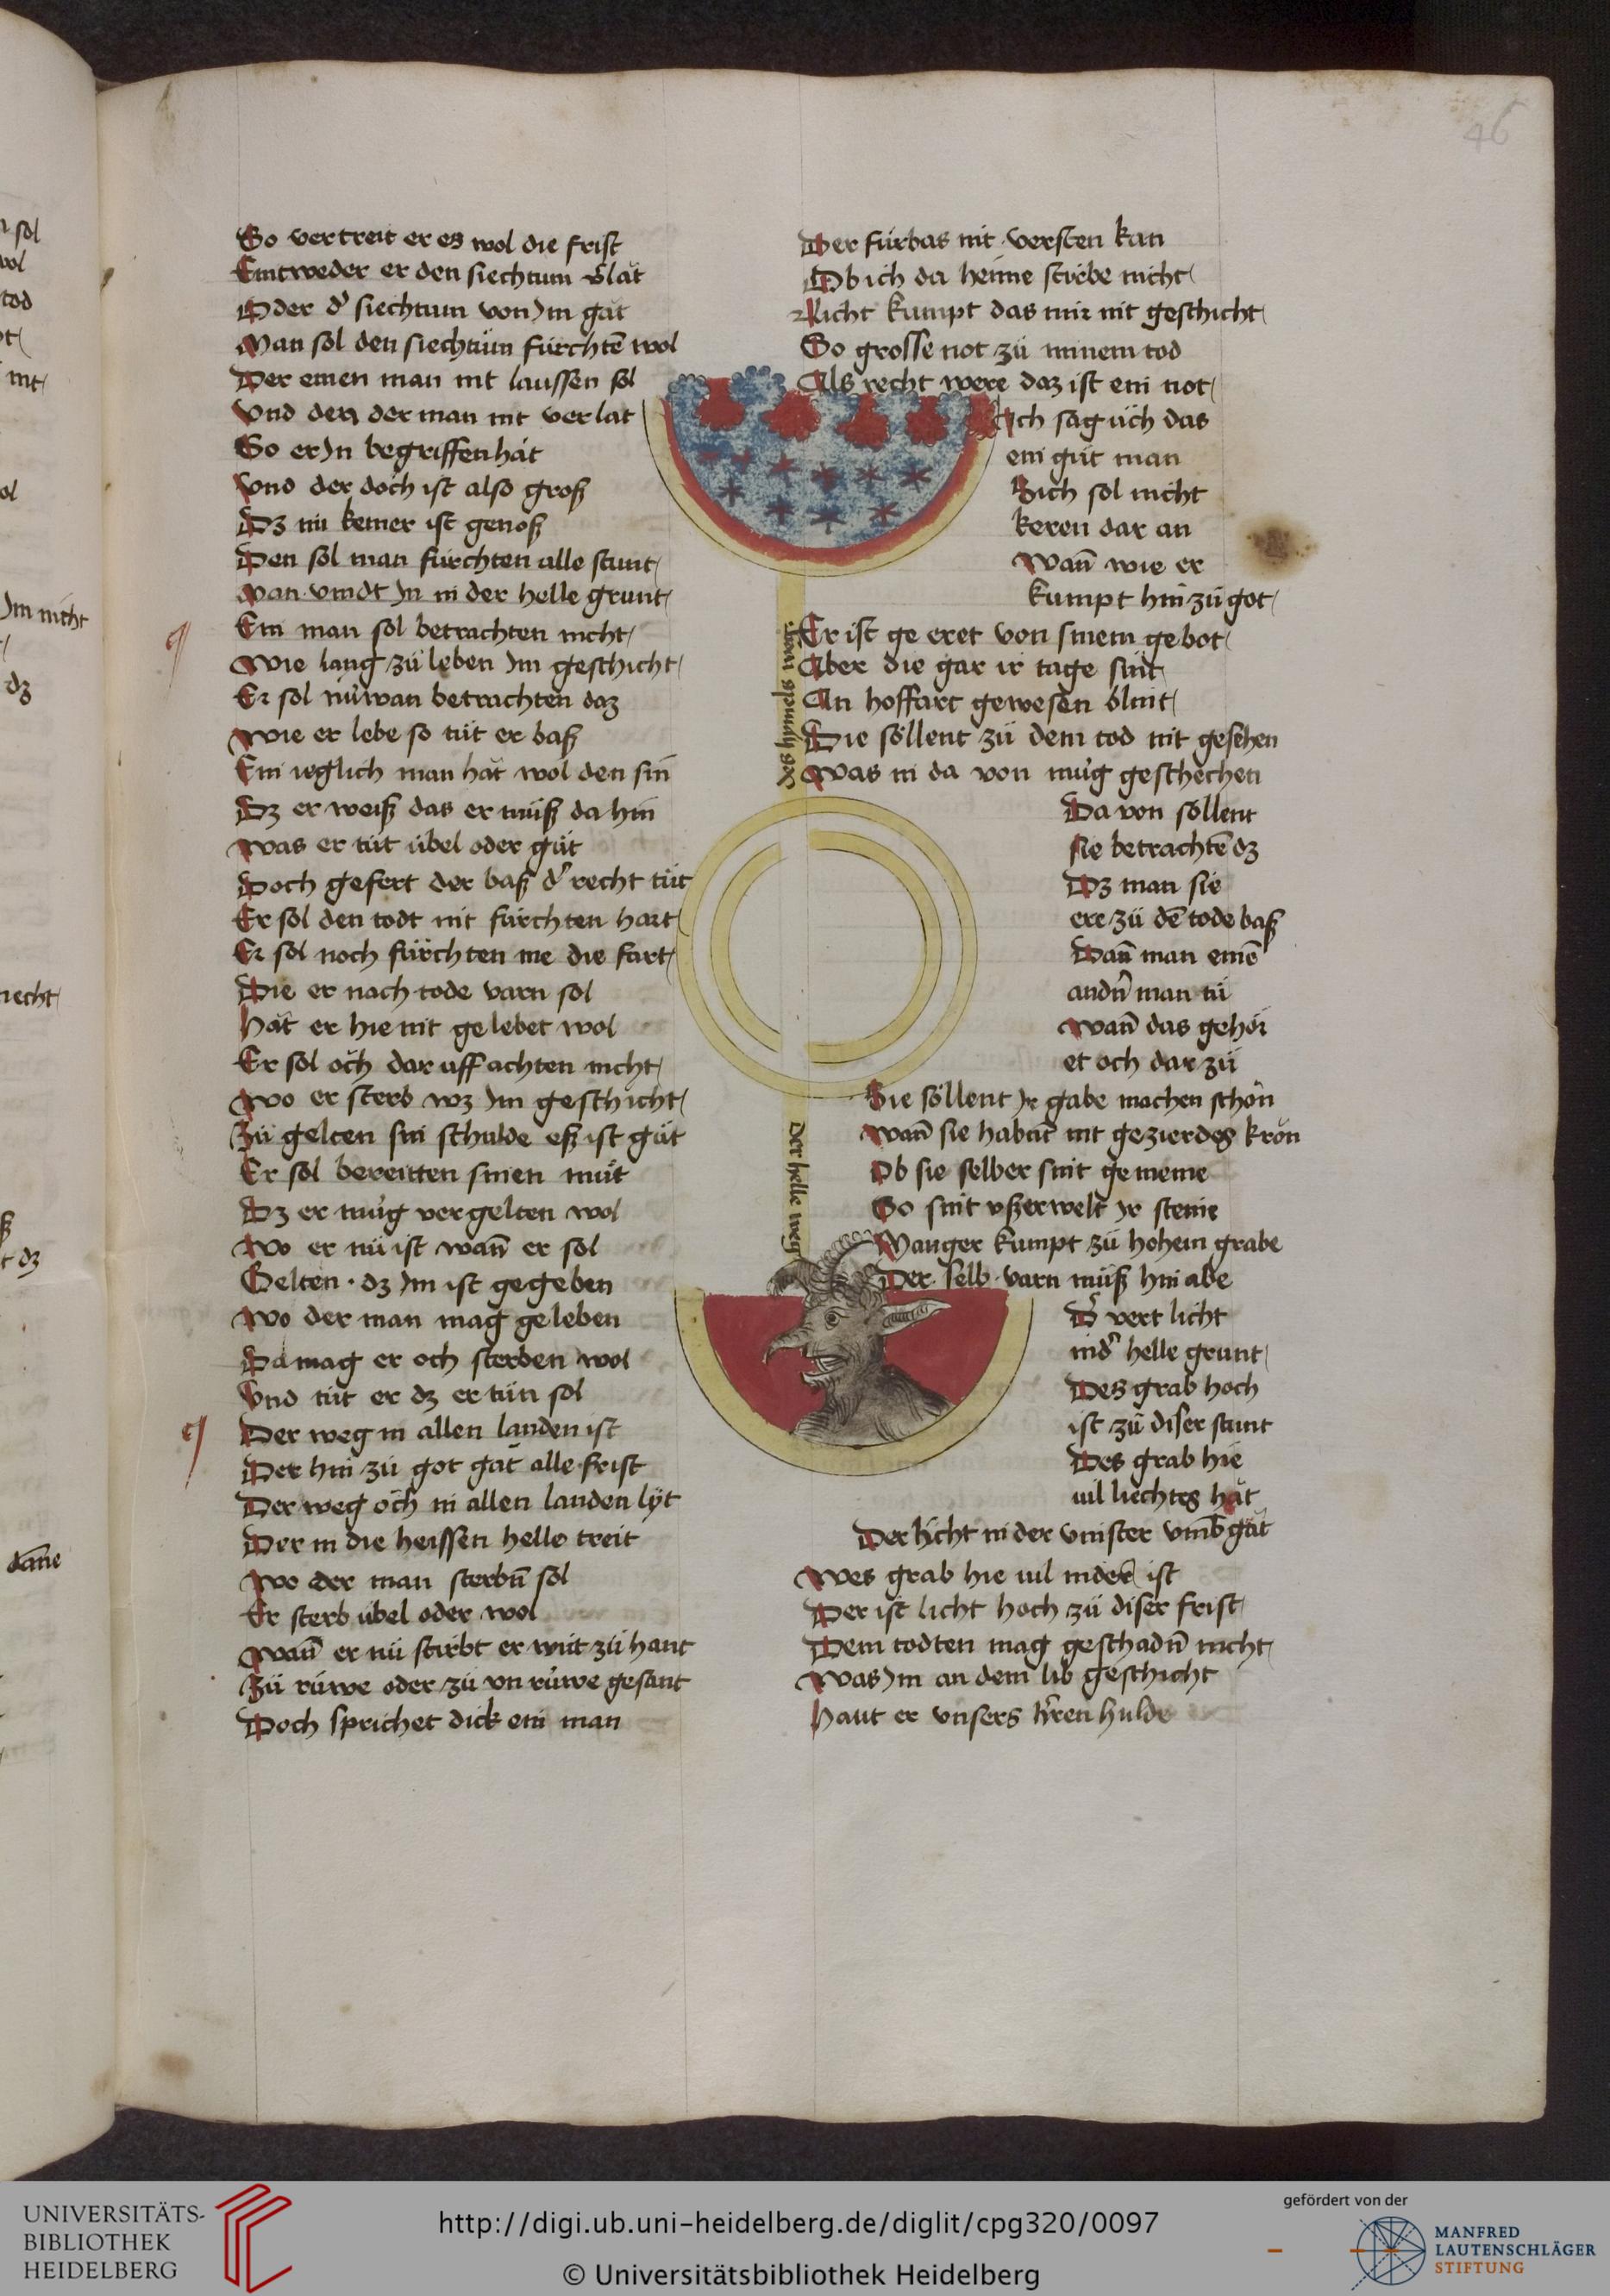 46
So vertreit er es wol die frist
Eintweder er den siechtum v̄lăt
Oder d͛ siechtum von Jm găt
Man sol den siechtüm fürchtē wol
Der einen man nit laussen sol
Vnd den der man nit verlat
So er Jn begriffen hăt
Vnd der doch ist also groß
Dz nü keiner ist genoß
Den sol man fürchten alle stunt
Man vindt Jn in der helle grunt
Ein man sol betrachten nicht
Wie lang zü leben Jm geschicht
Er sol nüwan betrachten daz
Wie er lebe so tüt er baß
Ein ieglich man hăt wol den sin
Dz er weiß das er müß da hin
Was er tüt übel oder güt
Doch gefert der baß d͛ recht tüt
Er sol den todt nit fürchten hart
Er sol noch fürchten me die fart
Die er nach tode varn sol
Hăt er hie nit gelebet wol
Er sol och dar uff achten nicht
Wo er sterb wz Jm geschicht
Zü gelten sin schulde eß ist güt
Er sol bereitten sinen müt
Dz er müg vergelten wol
Wo er nü ist wañ er sol
Gelten · dz Jm ist gegeben
Wo der man mag geleben
Da mag er och sterben wol
Vnd tüt er dz er tün sol
Der weg in allen landen ist
Der hin zü got găt alle frist
Der weg och in allen landen lÿt
Der in die heissen helle treit
Wo der man sterbn̄ sol
Er sterb übel oder wol
Wañ er nü stirbt er wirt zü hant
Zü rüwe oder zü vn rüwe gesant
Doch sprichet dick ein man
Der fürbas nit versten kan
Ob ich da heime stirbe nicht
Licht kumpt das mir nit geschicht
So grosse not zü minem tod
Als recht were daz ist ein not
Ich sag üch das
ein güt man
Sich sol nicht
keren dar an
Wañ wie er
kumpt hin zü got
Er ist ge eret von sinem gebot
Aber die gar ir tage sint
An hoffart gewesen blint
Die söllent zü dem tod nit gesehen
Was in da von müg geschechen
Da von söllent
sie betrachtē dz
Dz man sie
ere zü dē tode baß
Dañ man einē
andn̄ man tü
Wañ das gehör
et och dar zü
Sie söllent Jr gabe machen schön
Wañ sie habnt nit gezierdes kron
Ob sie selber sint gemeine
So sint vßerwelt Jr steine
Manger kumpt zü hohem grabe
Der selb varn müß hin abe
D͛ vert licht
in d͛ helle grunt
Des grab hoch
ist zü diser stunt
Des grab hie
vil liechtes hăt
Der licht in der vinster vmb găt
Wes grab hie vil nider ist
Der ist licht hoch zü diser frist
Dem todten mag geschadn̄ nicht
Was Jm an dem lib geschicht
Haut er vnsers h̄ren hulde
des hymels weg
Der helle weg
UNIVERSITÄTS-
BIBLIOTHEK
HEIDELBERG
http://digi.ub.uni-heidelberg.de/diglit/cpg320/0097
© Universitätsbibliothek Heidelberg
gefördert von der
MANFRED
LAUTENSCHLÄGER
STIFTUNG